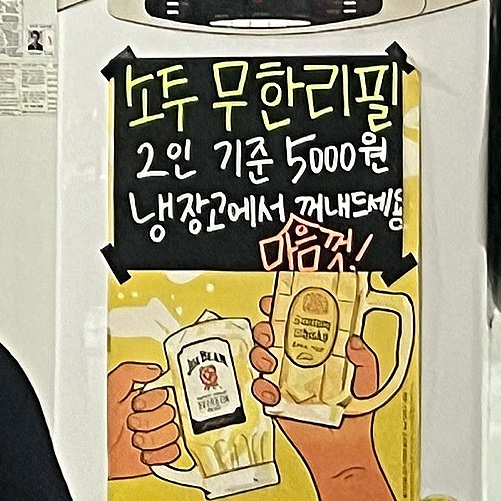 소투 무한리필
2인 기준 5000원
냉장고에서 꺼내드세용
마음껏!
JIM BEAM